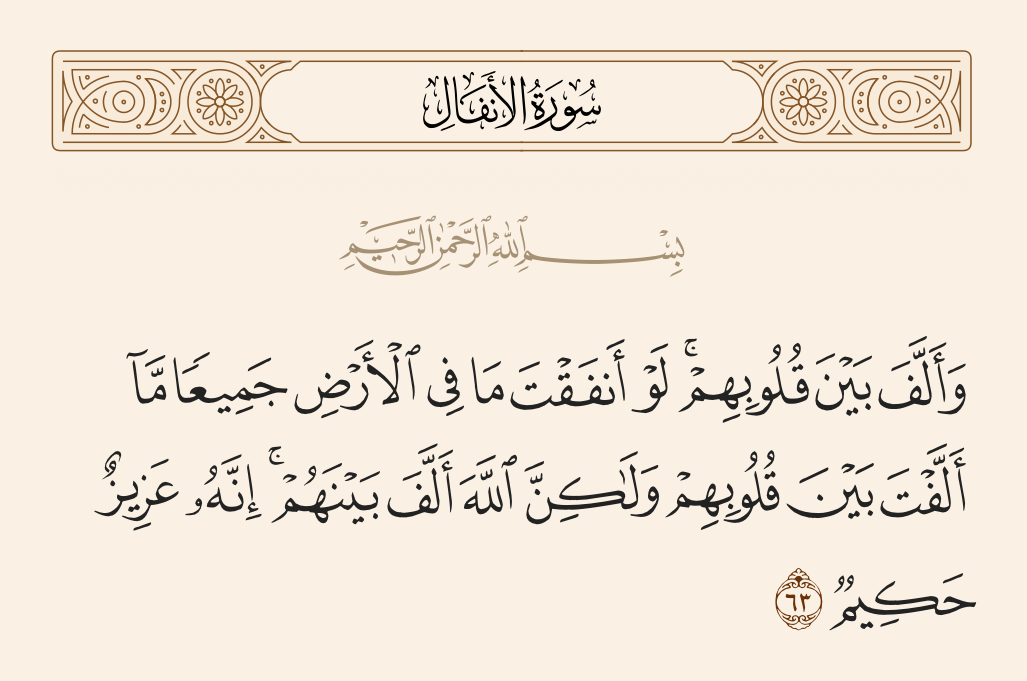 سُورَةُ الأَنفَالِ
بِسْمِ ٱللَّهِ ٱلرَّحْمَٰنِ ٱلرَّحِيمِ
وَأَلَّفَ بَيْنَ قُلُوبِهِمْ ۚ لَوْ أَنفَقْتَ مَا فِى ٱلْأَرْضِ جَمِيعًا مَّآ
أَلَّفْتَ بَيْنَ قُلُوبِهِمْ وَلَـٰكِنَّ ٱللَّهَ أَلَّفَ بَيْنَهُمْ ۚ إِنَّهُۥ عَزِيزٌ
حَكِيمٌ ٦٣